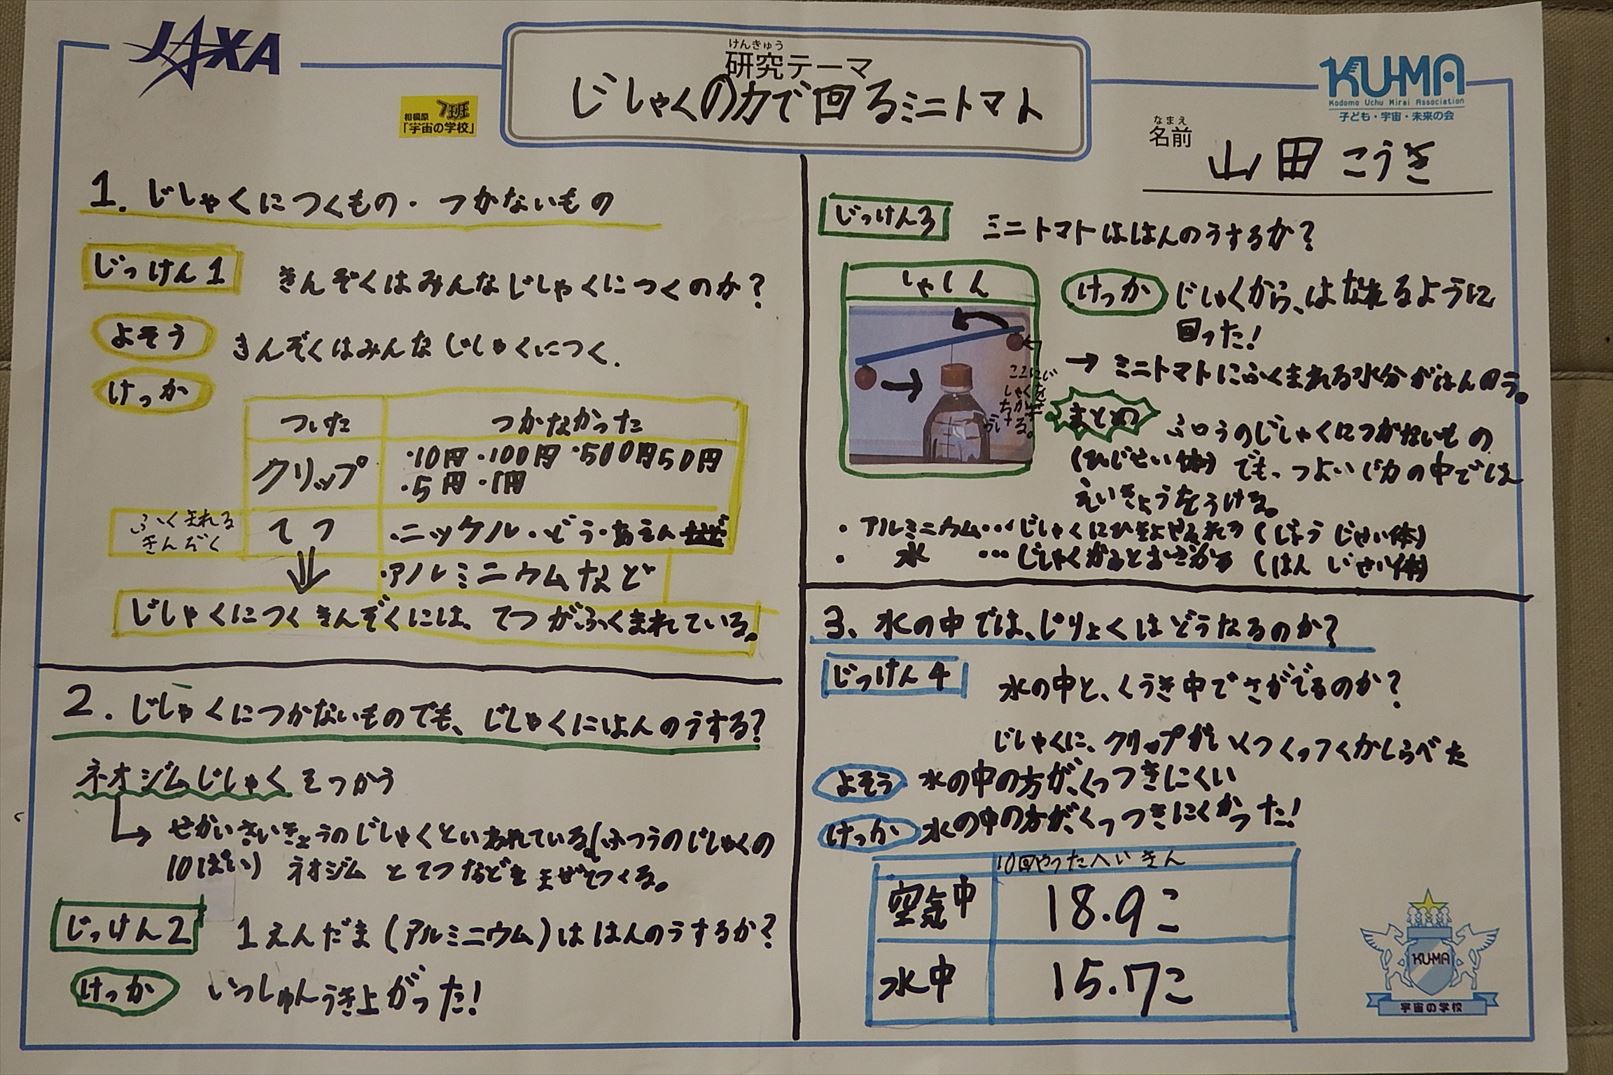 JAXA
相模原 7班
「宇宙の学校」
けんきゅう
研究テーマ
じしゃくの力で回るミニトマト
KU-MA
Kodomo Uchu Mirai Association
子ども・宇宙・未来の会
なまえ
名前
山田こうき
1. じしゃくにつくもの・つかないもの
じっけん1 きんぞくはみんなじしゃくにつくのか?
よそう きんぞくはみんなじしゃくにつく.
けっか
ついた つかなかった
クリップ ・10円・100円・500円50円
・5円・1円
ふくまれる
きんぞく
てつ ・ニッケル・どう・あえん
・アルミニウムなど
じしゃくにつくきんぞくには、てつがふくまれている。
2. じしゃくにつかないものでも、じしゃくにはんのうする?
ネオジムじしゃくをつかう
せかいさいきょうのじしゃくといわれている。(ふつうのじしゃくの
10ばい) ネオジムとてつなどをまぜてつくる。
じっけん2 1えんだま(アルミニウム)ははんのうするか?
けっか いっしゅんうき上がった!
じっけん3 ミニトマトははんのうするか?
しゃしん
ここにじ
しゃくを
ちかず
けっか じしゃくから、はなれるように
回った!
→ ミニトマトにふくまれる水分がはんのう。
まとめ ふつうのじしゃくにつかないもの
(ひじせい体)でも、つよいじ力の中では
えいきょうをうける。
・アルミニウム…じしゃくに (じょうじせい体)
・水 …じしゃく とおざかる (はんじせい体)
3. 水の中では、じりょくはどうなるのか?
じっけん4 水の中と、くうき中でさがでるのか?
じしゃくに、クリップがいくつくっつくかしらべた
よそう 水の中の方が、くっつきにくい
けっか 水の中の方が、くっつきにくかった!
10回やったへいきん
空気中 18.9こ
水中 15.7こ
KU-MA
宇宙の学校